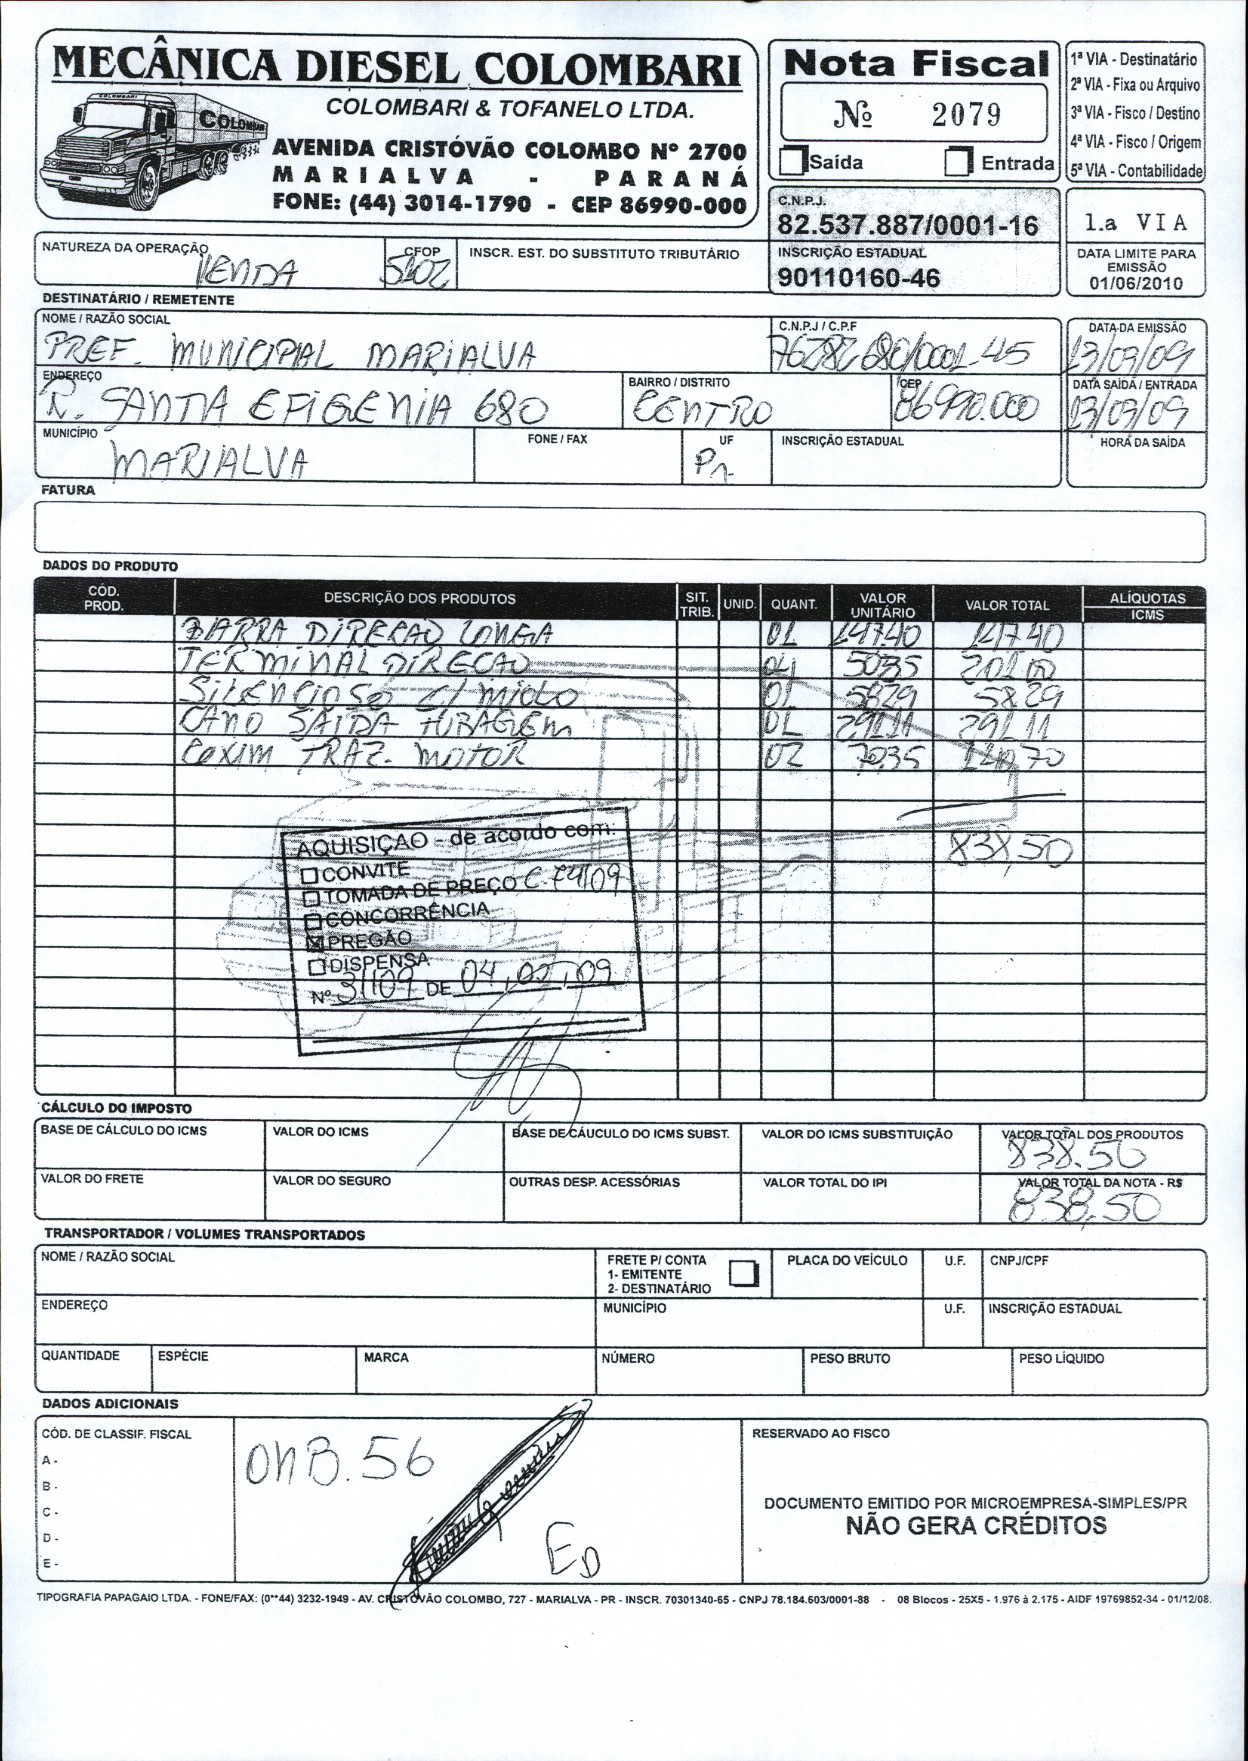 MECÂNICA DIESEL COLOMBARI
COLOMBARI & TOFANELO LTDA.
COLOMBARI
COLOMBARI
AVENIDA CRISTÓVÃO COLOMBO Nº 2700
MARIALVA - PARANÁ
FONE: (44) 3014-1790 - CEP 86990-000
Nota Fiscal
Nº 2079
Saída Entrada
1ª VIA - Destinatário
2ª VIA - Fixa ou Arquivo
3ª VIA - Fisco / Destino
4ª VIA - Fisco / Origem
5ª VIA - Contabilidade
C.N.P.J.
82.537.887/0001-16
INSCRIÇÃO ESTADUAL
90110160-46
1.a VIA
DATA LIMITE PARA
EMISSÃO
01/06/2010
NATUREZA DA OPERAÇÃO
VENDA
CFOP
5102
INSCR. EST. DO SUBSTITUTO TRIBUTÁRIO
DESTINATÁRIO / REMETENTE
NOME / RAZÃO SOCIAL
PREF. MUNICIPAL MARIALVA
C.N.P.J / C.P.F
76282680/0001-45
DATA DA EMISSÃO
ENDEREÇO
R. SANTA EFIGENIA 680
BAIRRO / DISTRITO
CENTRO
CEP
86990.000
DATA SAÍDA / ENTRADA
MUNICÍPIO
MARIALVA
FONE / FAX
UF
Pr
INSCRIÇÃO ESTADUAL
HORA DA SAÍDA
FATURA
DADOS DO PRODUTO
CÓD. PROD. DESCRIÇÃO DOS PRODUTOS SIT. TRIB. UNID. QUANT. VALOR UNITÁRIO VALOR TOTAL ALÍQUOTAS ICMS
BARRA DIRECAO LONGA 01 147.40 147.40
TERMINAL DIRECAO 04 5035 201.00
SILENCIOSO C/ MIOLO 01 5829 58.29
CANO SAIDA TUBAGEM 01 291.11 291,11
COXIM TRAZ. MOTOR 02 7035 140,70
838,50
AQUISIÇÃO - de acordo com:
CONVITE
TOMADA DE PREÇO C.74/09
CONCORRÊNCIA
PREGÃO
DISPENSA
Nº 31/09 DE 04,05,09
CÁLCULO DO IMPOSTO
BASE DE CÁLCULO DO ICMS
VALOR DO ICMS
BASE DE CÁUCULO DO ICMS SUBST.
VALOR DO ICMS SUBSTITUIÇÃO
VALOR TOTAL DOS PRODUTOS
838.50
VALOR DO FRETE
VALOR DO SEGURO
OUTRAS DESP. ACESSÓRIAS
VALOR TOTAL DO IPI
VALOR TOTAL DA NOTA - R$
838,50
TRANSPORTADOR / VOLUMES TRANSPORTADOS
NOME / RAZÃO SOCIAL
FRETE P/ CONTA
1- EMITENTE
2- DESTINATÁRIO
PLACA DO VEÍCULO
U.F.
CNPJ/CPF
ENDEREÇO
MUNICÍPIO
U.F.
INSCRIÇÃO ESTADUAL
QUANTIDADE
ESPÉCIE
MARCA
NÚMERO
PESO BRUTO
PESO LÍQUIDO
DADOS ADICIONAIS
CÓD. DE CLASSIF. FISCAL
A -
B -
C -
D -
E -
ONB.56
ED
RESERVADO AO FISCO
DOCUMENTO EMITIDO POR MICROEMPRESA-SIMPLES/PR
NÃO GERA CRÉDITOS
TIPOGRAFIA PAPAGAIO LTDA. - FONE/FAX: (0**44) 3232-1949 - AV. CRISTÓVÃO COLOMBO, 727 - MARIALVA - PR - INSCR. 70301340-65 - CNPJ 78.184.603/0001-88 - 08 Blocos - 25X5 - 1.976 à 2.175 - AIDF 19769852-34 - 01/12/08.